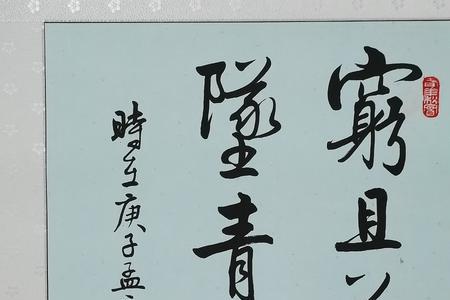 窮且
墜青
時在庚子孟